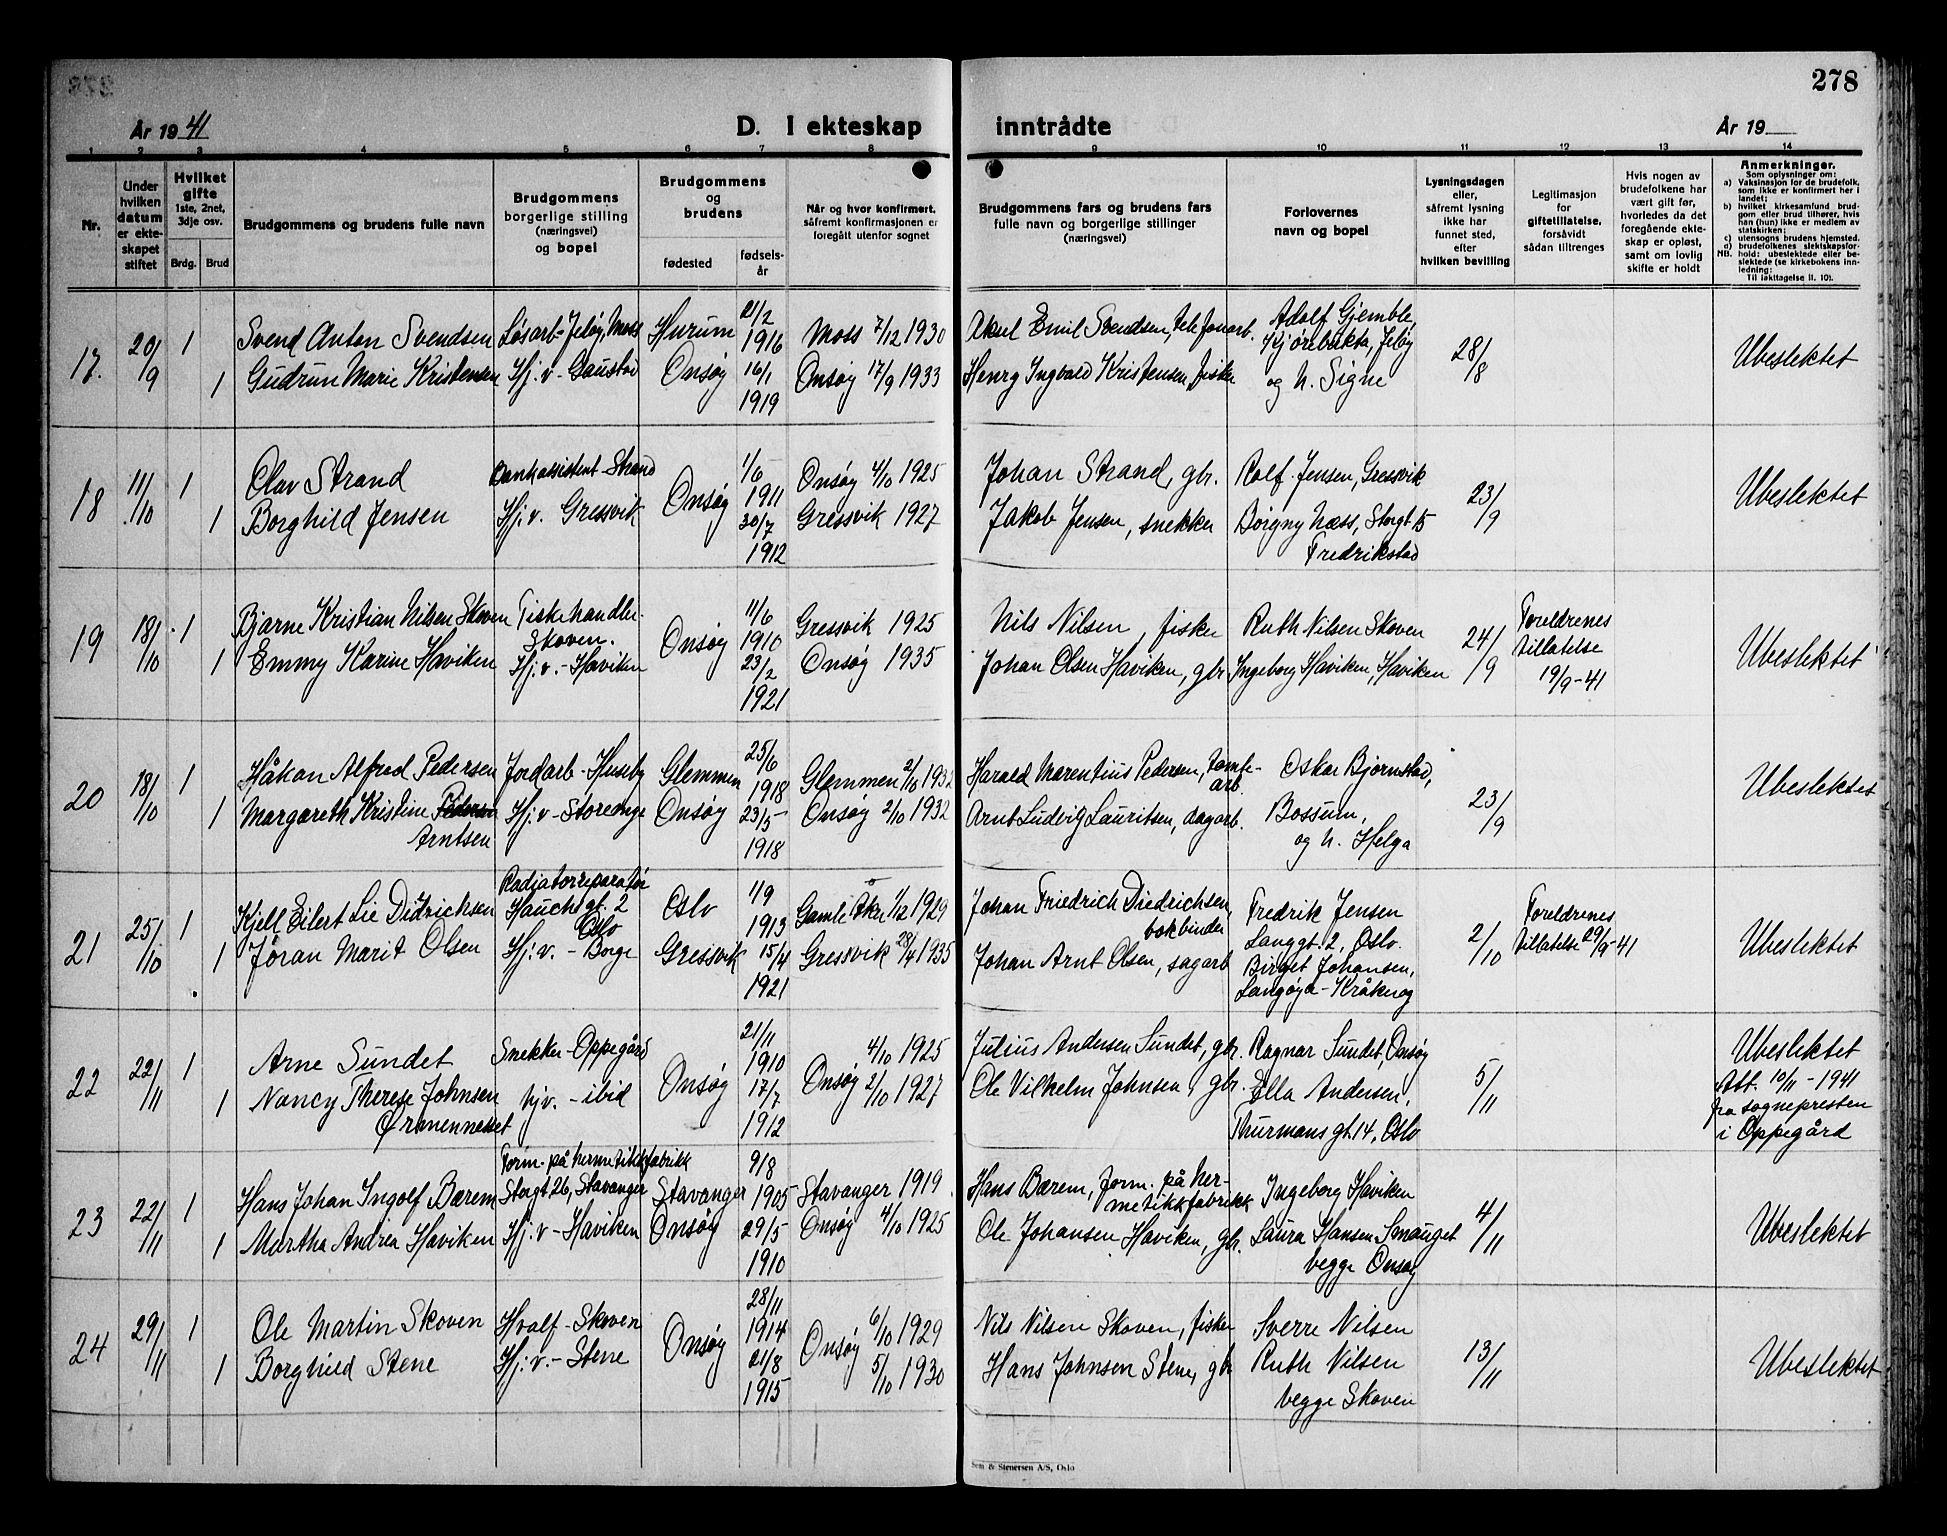 278
År 1941
D. I ekteskap
inntrådte
År 19
1 2 3 4 5 6 7 8 9 10 11 12 13 14
Nr.
Under hvilken datum er ekteskapet stiftet
Hvilket gifte 1ste, 2net, 3dje osv.
Brdg. Brud
Brudgommens og brudens fulle navn
Brudgommens borgerlige stilling (næringsvei) og bopel
Brudgommens og brudens
fødested
fødselsår
Når og hvor konfirmert, såfremt konfirmasjonen er foregått utenfor sognet
Brudgommens fars og brudens fars fulle navn og borgerlige stillinger (næringsvei)
Forlovernes navn og bopel
Lysningsdagen eller, såfremt lysning ikke har funnet sted, efter hvilken bevilling
Legitimasjon for giftetillatelse, forsåvidt sådan tiltrenges
Hvis nogen av brudefolkene har vært gift før, hvorledes da det foregående ekteskap er opløst, samt om lovlig skifte er holdt
Anmerkninger.
Som oplysninger om:
a) Vaksinasjon for de brudefolk, som ikke er konfirmert her i landet;
b) hvilket kirkesamfund brudgom eller brud tilhører, hvis han (hun) ikke er medlem av statskirken;
c) utensogns brudens hjemsted.
d) brudefolkenes slektskapsforhold: ubeslektede eller beslektede (se kirkebokens innledning:
NB. Til iakttagelse ll. 10).
17. 20/9 1 Svend Anton Svendsen Løsarb-Jeløy, Moss Hurum 21/2 1916 Moss 7/12 1930 Emil Svendsen, telefonarb. Adolf Gjemble, Kjørebukta, Jeløy 28/8 Ubeslektet
1 Gudrun Marie Kristensen Hj. v.- Gaustad Onsøy 16/1 1919 Onsøy 17/9 1933 Henry Ingvald Kristensen, fisker og h. Signe
18 11/10 1 Olav Strand Bankassistent-Strand Onsøy 1/6 1911 Onsøy 4/10 1925 Johan Strand, gbr. Rolf Jensen, Gressvik 23/9 Ubeslektet
1 Borghild Jensen Hj. v. Gressvik 30/7 1912 Gressvik 1927 Jakob Jensen, snekker Borgny Næss, Storgt 15 Fredrikstad
19 18/10 1 Bjarne Kristian Nilsen Skoven Fiskehandler. Skoven. Onsøy 11/6 1910 Gressvik 1925 Nils Nilsen, fisker Ruth Nilsen Skoven 24/9 Foreldrenes tillatelse 19/9-41 Ubeslektet
1 Emmy Karine Haviken Hj. v. - Haviken 23/2 1921 Onsøy 1935 Johan Olsen Haviken, gbr. Ingeborg Haviken, Haviken
20 18/10 1 Håkon Alfred Pedersen Jordarb - Huseby Glemmen 25/6 1918 Glemmen 2/10 1932 Harald Marentius Pedersen, tomtearb. Oskar Bjørnstad, 23/9 Ubeslektet
1 Margareth Kristine Pedersen Arntsen Hj. v - Storeenge Onsøy 23/5 1918 Onsøy 2/10 1932 Arnt Ludvig Lauritsen, dagarb. Bossum, og h. Helga
21 25/10 1 Kjell Eilert Lie Didrichsen Radiatorreparatør Hauchsgt. 2 Oslo Oslo 1/9 1913 Gamle Aker 1/12 1929 Johan Friedrich Diedrichsen, bokbinder Fredrik Jensen Langgt. 2, Oslo. 2/10 Foreldrenes tillatelse 29/9-41 Ubeslektet
1 Jøran Marit Olsen Hj. v. - Borge Gressvik 15/4 1921 Gressvik 28/4 1935 Johan Arnt Olsen, sagarb Birget Johansen, Langøya - Kråkerøy
22 22/11 1 Arne Sundet Snekker-Oppegård Onsøy 21/11 1910 Onsøy 4/10 1925 Julius Andersen Sundet, gbr. Ragnar Sundet, Onsøy 5/11 Ubeslektet
1 Nancy Therese Johnsen Ørmenneset hjv. - ibid 17/7 1912 2/10 1927 Ole Vilhelm Johnsen, gbr. Ella Andersen, Thurmans gt. 14, Oslo Att. 10/11 - 1941 fra sognepresten i Oppegård
23 22/11 1 Hans Johan Ingolf Bærem Form. på hermetikkfabrikk Storgt 26, Stavanger Stavanger 9/8 1905 Stavanger 1919. Hans Bærem, form. på hermetikkfabrikk Ingeborg Haviken 4/11 Ubeslektet
1 Martha Andrea Haviken Hj. v - Haviken Onsøy 29/5 1910 Onsøy 4/10 1925 Ole Johansen Haviken, gbr. Laura Hansen Smauget begge Onsøy
24 29/11 1 Ole Martin Skoven Hvalf - Skoven Onsøy 28/11 1914 Onsøy 6/10 1929 Nils Nilsen Skoven, fisker Sverre Nilsen 13/11 Ubeslektet
1 Borghild Stene Hj. v. - Stene 21/8 1915 5/10 1930 Hans Johnsen Stene, gbr Ruth Nilsen begge Skoven
Sem & Stenersen A/S, Oslo